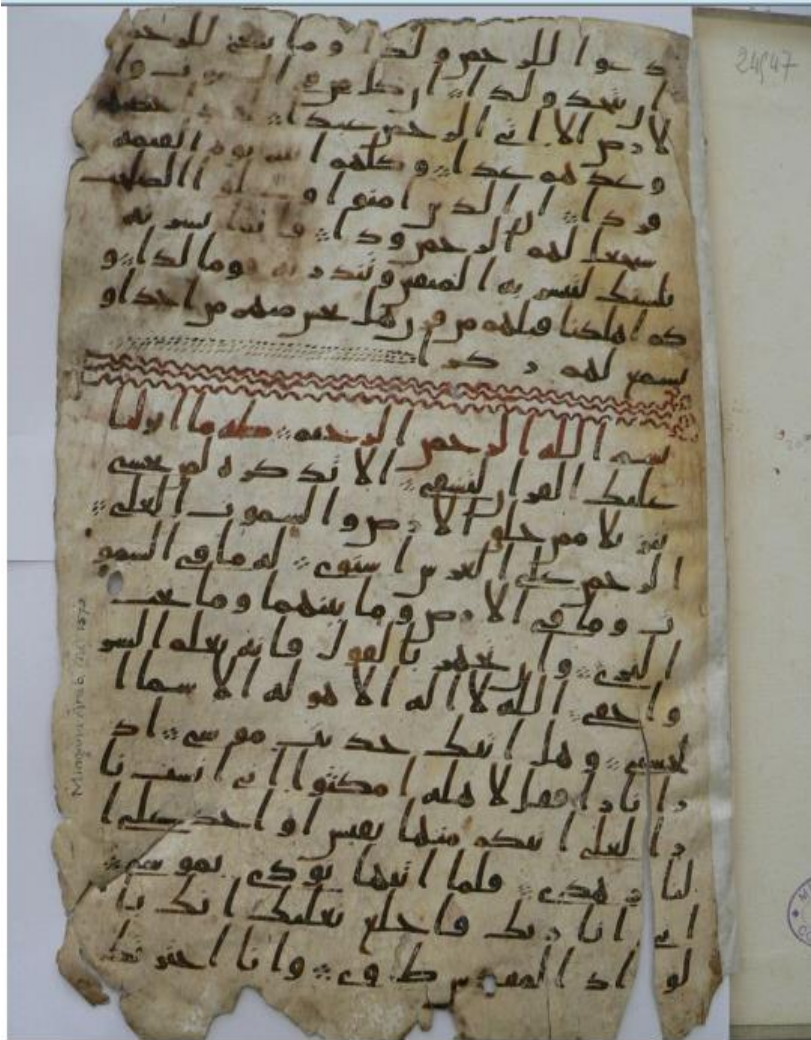 دعوا للرحمن ولدا وما ينبغي للرحمن
ان يتخذ ولدا ان كل من في السموت وا
لارض الا اتي الرحمن عبدا لقد احصيهم
وعدهم عدا وكلهم اتيه يوم القيمه
فردا ان الذين امنوا وعملوا الصلحت
سيجعل لهم الرحمن ودا فانما يسرنه
بلسنك لتبشر به المتقين وتنذر به قوما لدا و
كم اهلكنا قبلهم من قرن هل تحس منهم من احد او
تسمع لهم ركزا
بسم الله الرحمن الرحيم طه ما انزلنا
عليك القران لتشقى الا تذكره لمن يخشى
تنزيلا ممن خلق الارض والسموت العلى
الرحمن على العرش استوى له ما في السمو
ت وما في الارض وما بينهما وما تحت
الثرى وان تجهر بالقول فانه يعلم السر
واخفى الله لا اله الا هو له الاسما ا
لحسنى وهل اتيك حديث موسى اذ
را نارا فقل لاهله امكثوا اني انست نا
را لعلي اتيكم منها بقبس او اجد على ا
لنار هدى فلما اتيها نودي يموسى
اني انا ربك فاخلع نعليك انك با
لواد المقدس طوى وانا اخترتك
Mingana Arab. Isl. 1572
24947